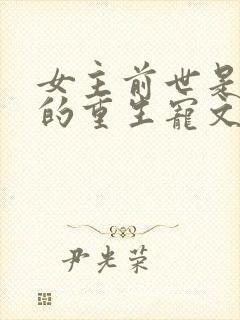 女主前世是
的重生宠文
尹光荣